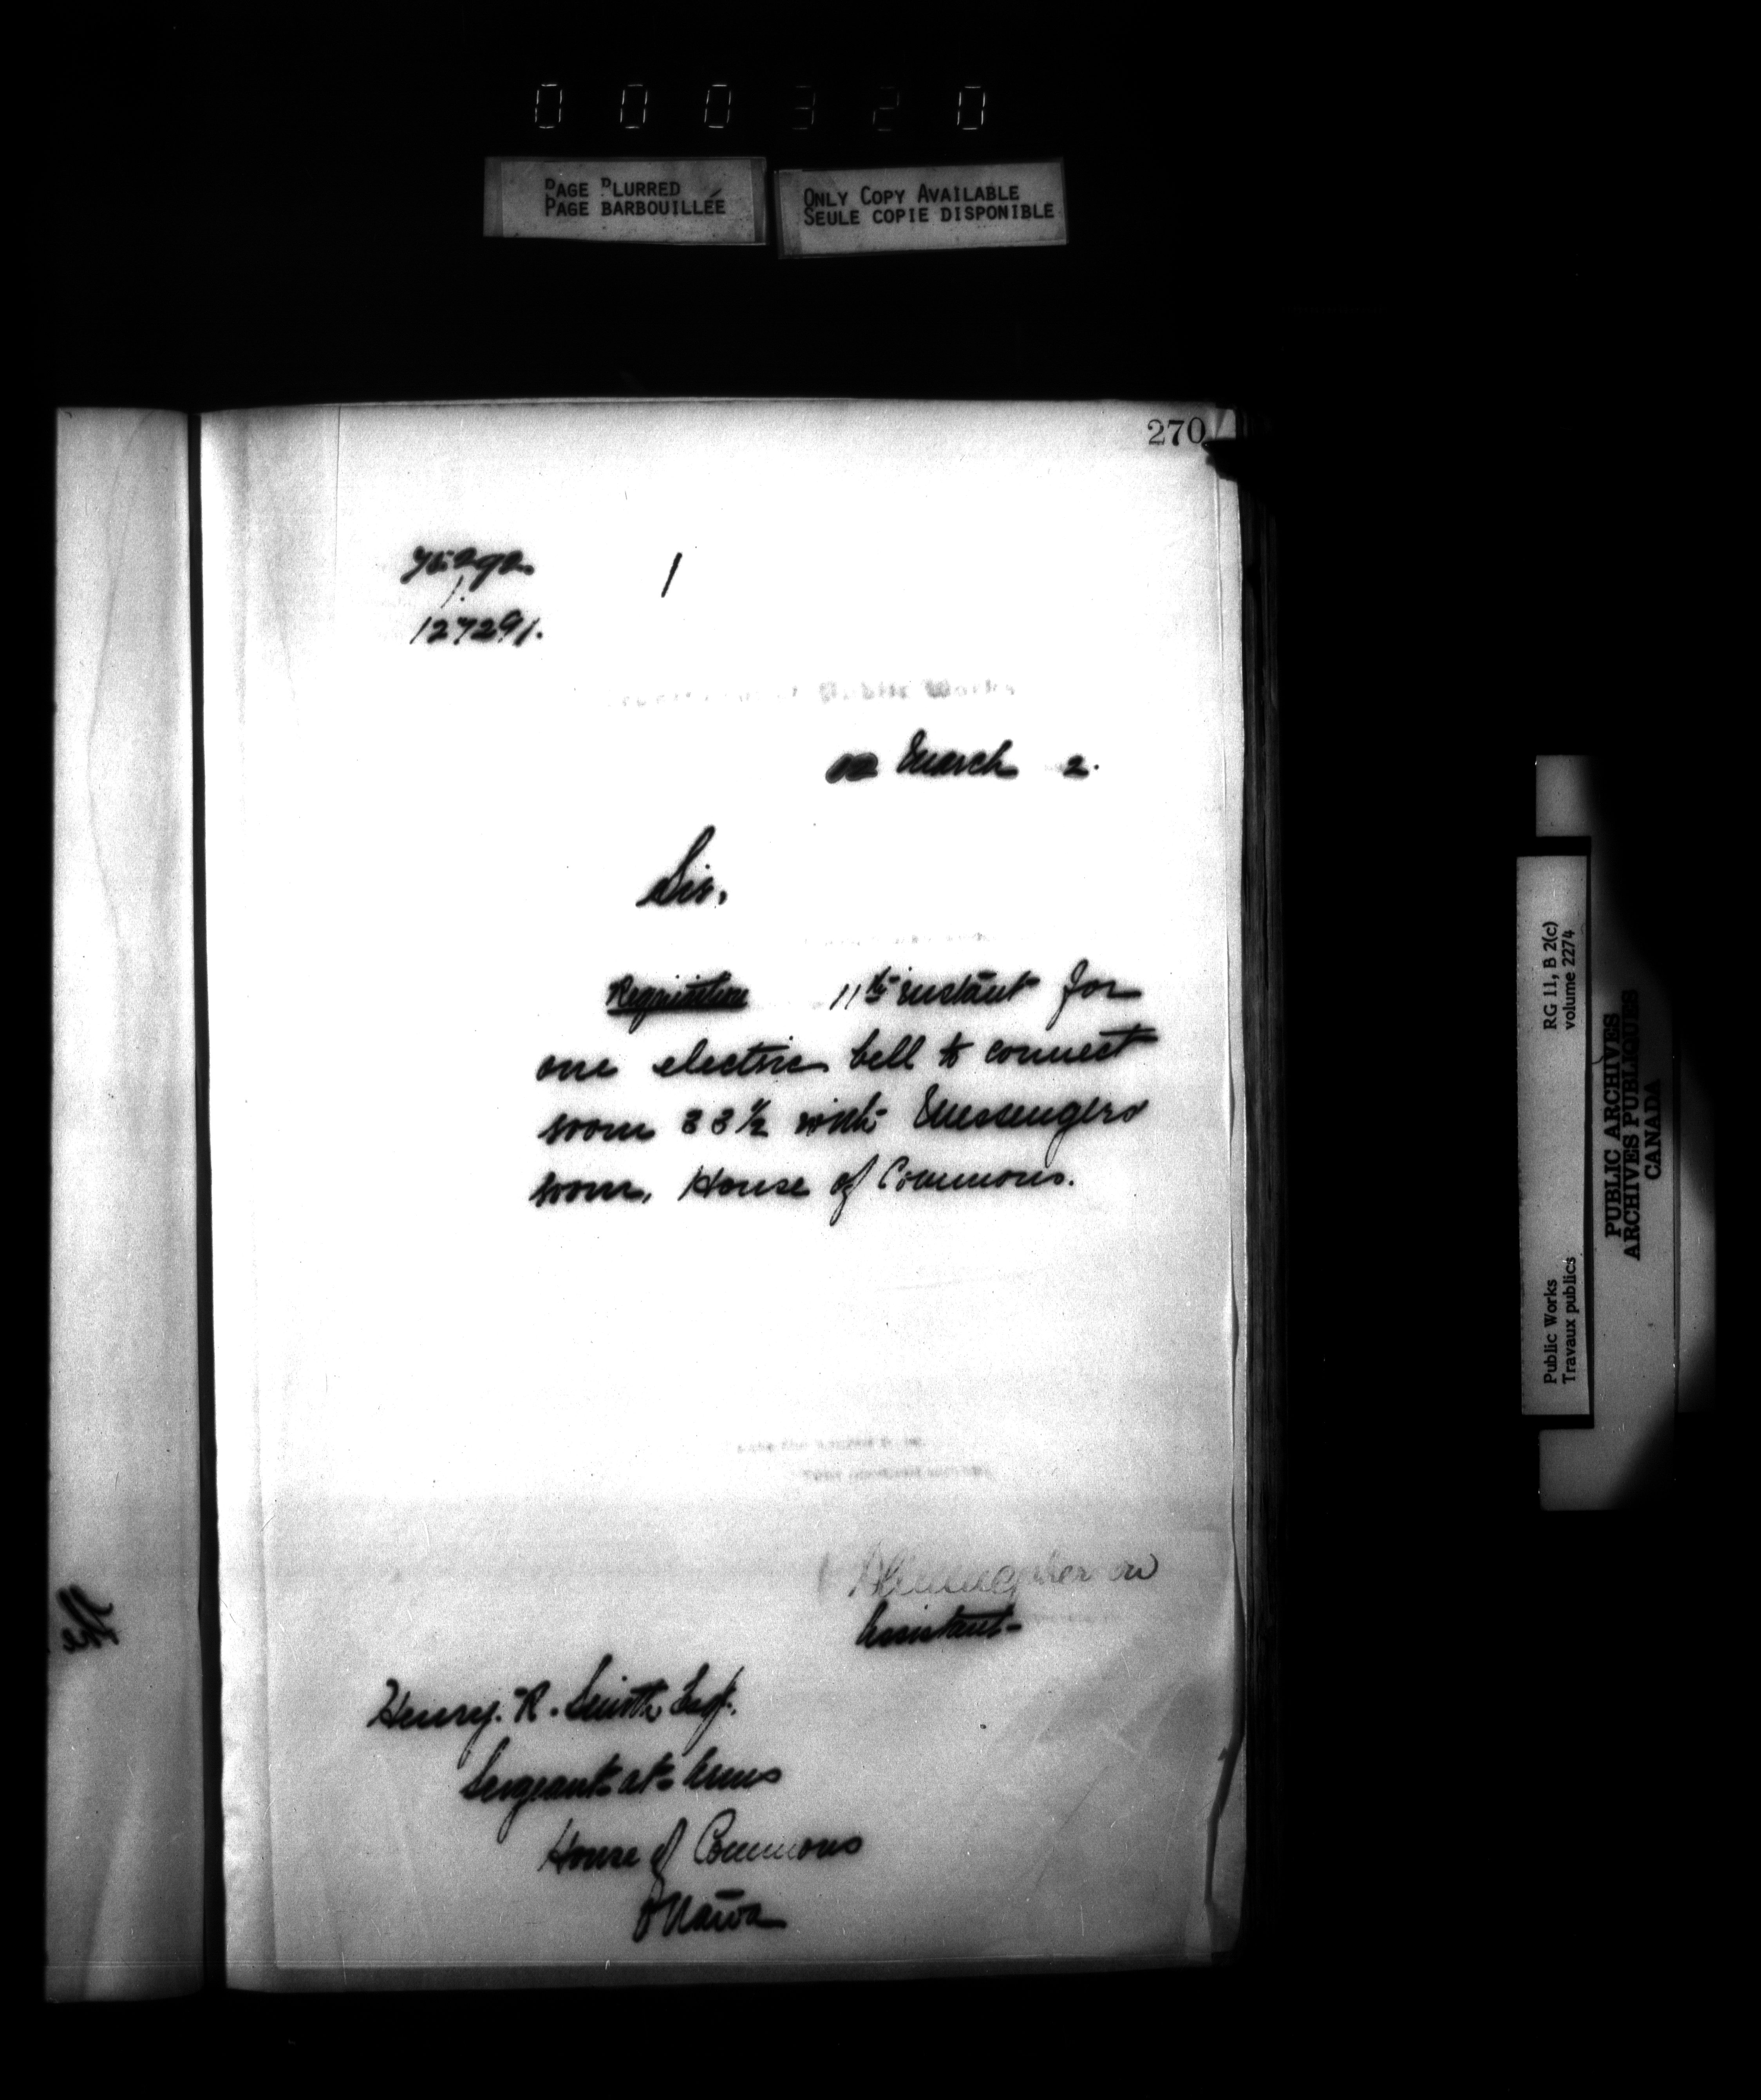 0 0 0 3 2 0
PAGE BLURRED
PAGE BARBOUILLÉE
ONLY COPY AVAILABLE
SEULE COPIE DISPONIBLE
270
75292.
1.
127291.
1
Public Works
12 March 2.
Sir,
Requisition 11th instant for
one electric bell to connect
room 33½ with Messengers
room, House of Commons.
Assistant
Henry. R. Smith, Esq.
Sergeant-at-Arms
House of Commons
Ottawa
the
Public Works
Travaux publics
RG 11, B 2(c)
volume 2274
PUBLIC ARCHIVES
ARCHIVES PUBLIQUES
CANADA